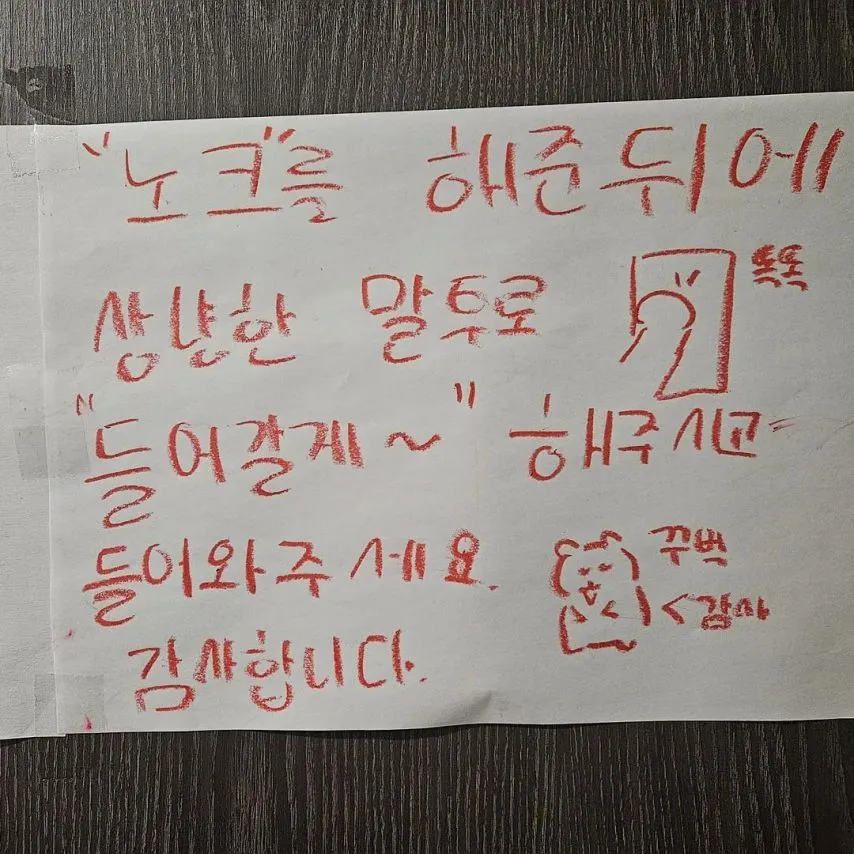 "노크"를 해준 뒤에
상냥한 말투로
똑똑
"들어갈게~" 해주시고
들어와 주세요.
꾸벅
<감사
감사합니다.